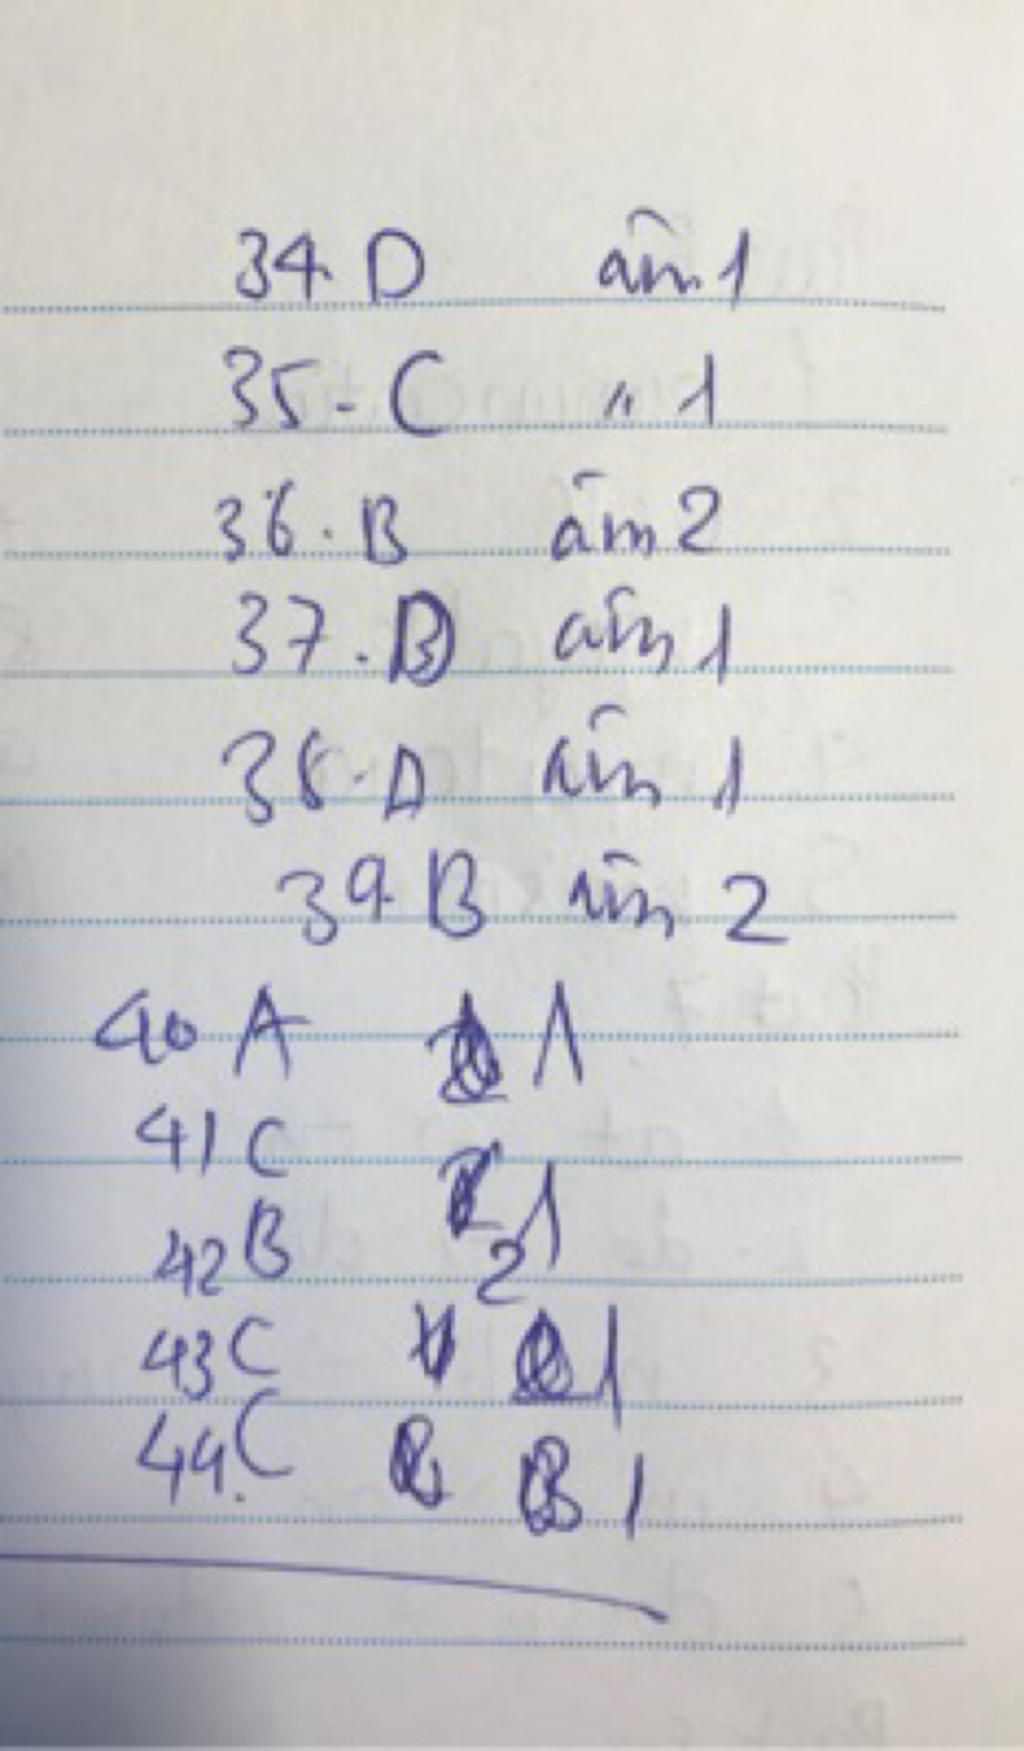 34. D âm 1
35. C " 1
36. B âm 2
37. D âm 1
38. D âm 1
39. B âm 2
40 A 1
41 C 1
42 B 2
43 C 1
44. C 1